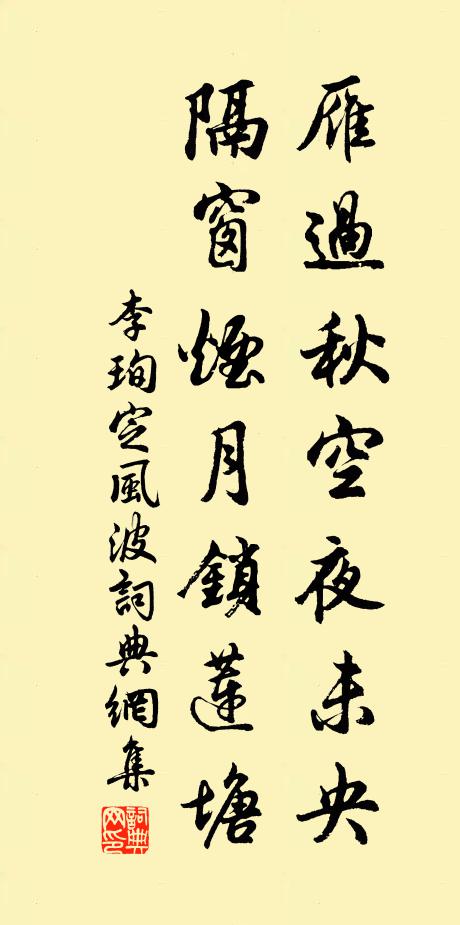 雁過秋空夜未央
隔窗煙月鎖蓮塘
李珣定風波詞典網集
詞典网印